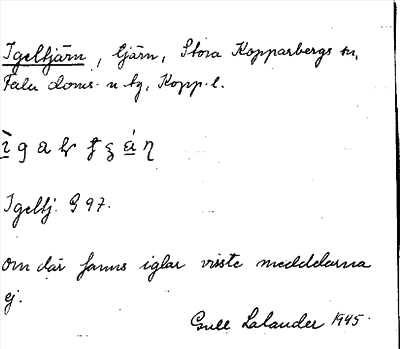 Igeltjärn, tjärn, Stora Kopparbergs sn,
Falu doms. n tg, Kopp. l.
Igeltj. G 97.
om där fanns iglar visste meddelarna
ej.
Gull Lalander 1945.